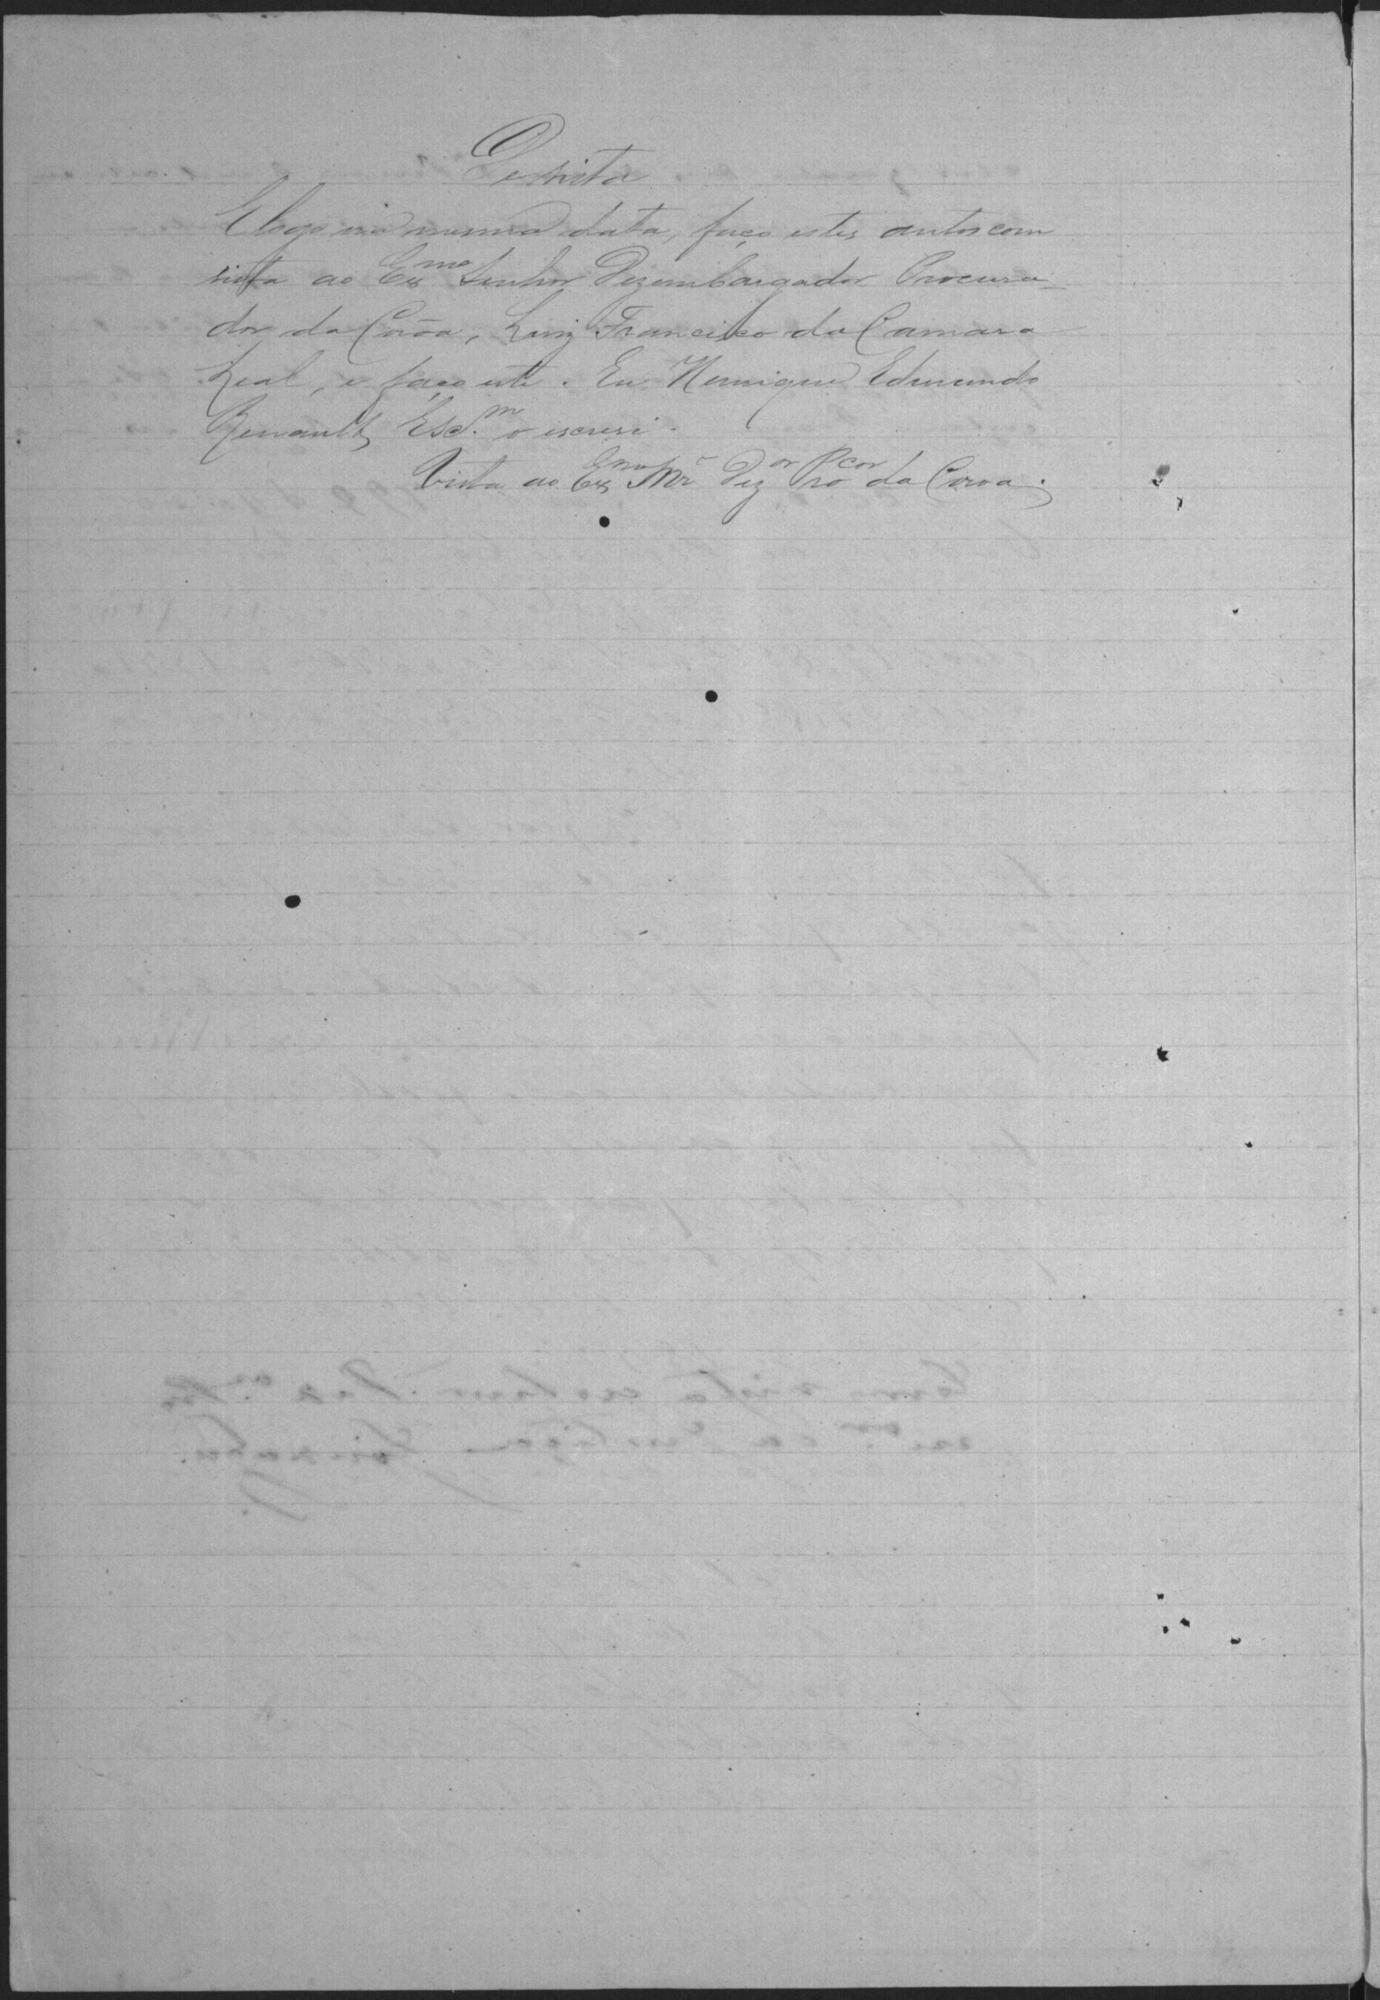 De vista
E logo na mesma data, faço estes autos com
vista ao Exmo Senhor Dezembargador Procura-
dor da Corôa, Luiz Francisco da Camara
Leal, e faço este. Eu Henrique Edmundo
Renault, Escm o escrevi.
Vista ao Exmo Snr Dezor Procor da Coroa.